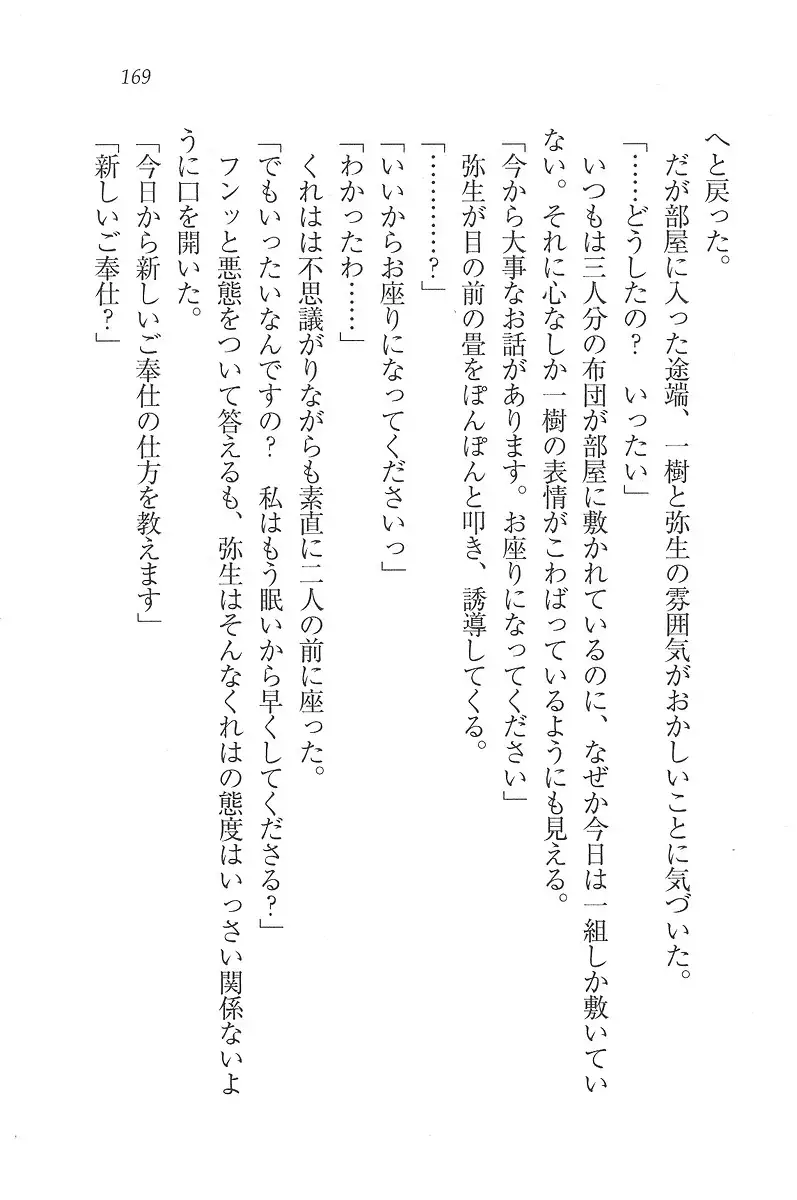 169
へと戻った。
だが部屋に入った途端、一樹と弥生の雰囲気がおかしいことに気づいた。
「……どうしたの？　いったい」
いつもは三人分の布団が部屋に敷かれているのに、なぜか今日は一組しか敷いてい
ない。それに心なしか一樹の表情がこわばっているようにも見える。
「今から大事なお話があります。お座りになってください」
弥生が目の前の畳をぽんぽんと叩き、誘導してくる。
「…………？」
「いいからお座りになってくださいっ」
「わかったわ……」
くれはは不思議がりながらも素直に二人の前に座った。
「でもいったいなんですの？　私はもう眠いから早くしてくださる？」
フンッと悪態をついて答えるも、弥生はそんなくれはの態度はいっさい関係ないよ
うに口を開いた。
「今日から新しいご奉仕の仕方を教えます」
「新しいご奉仕？」